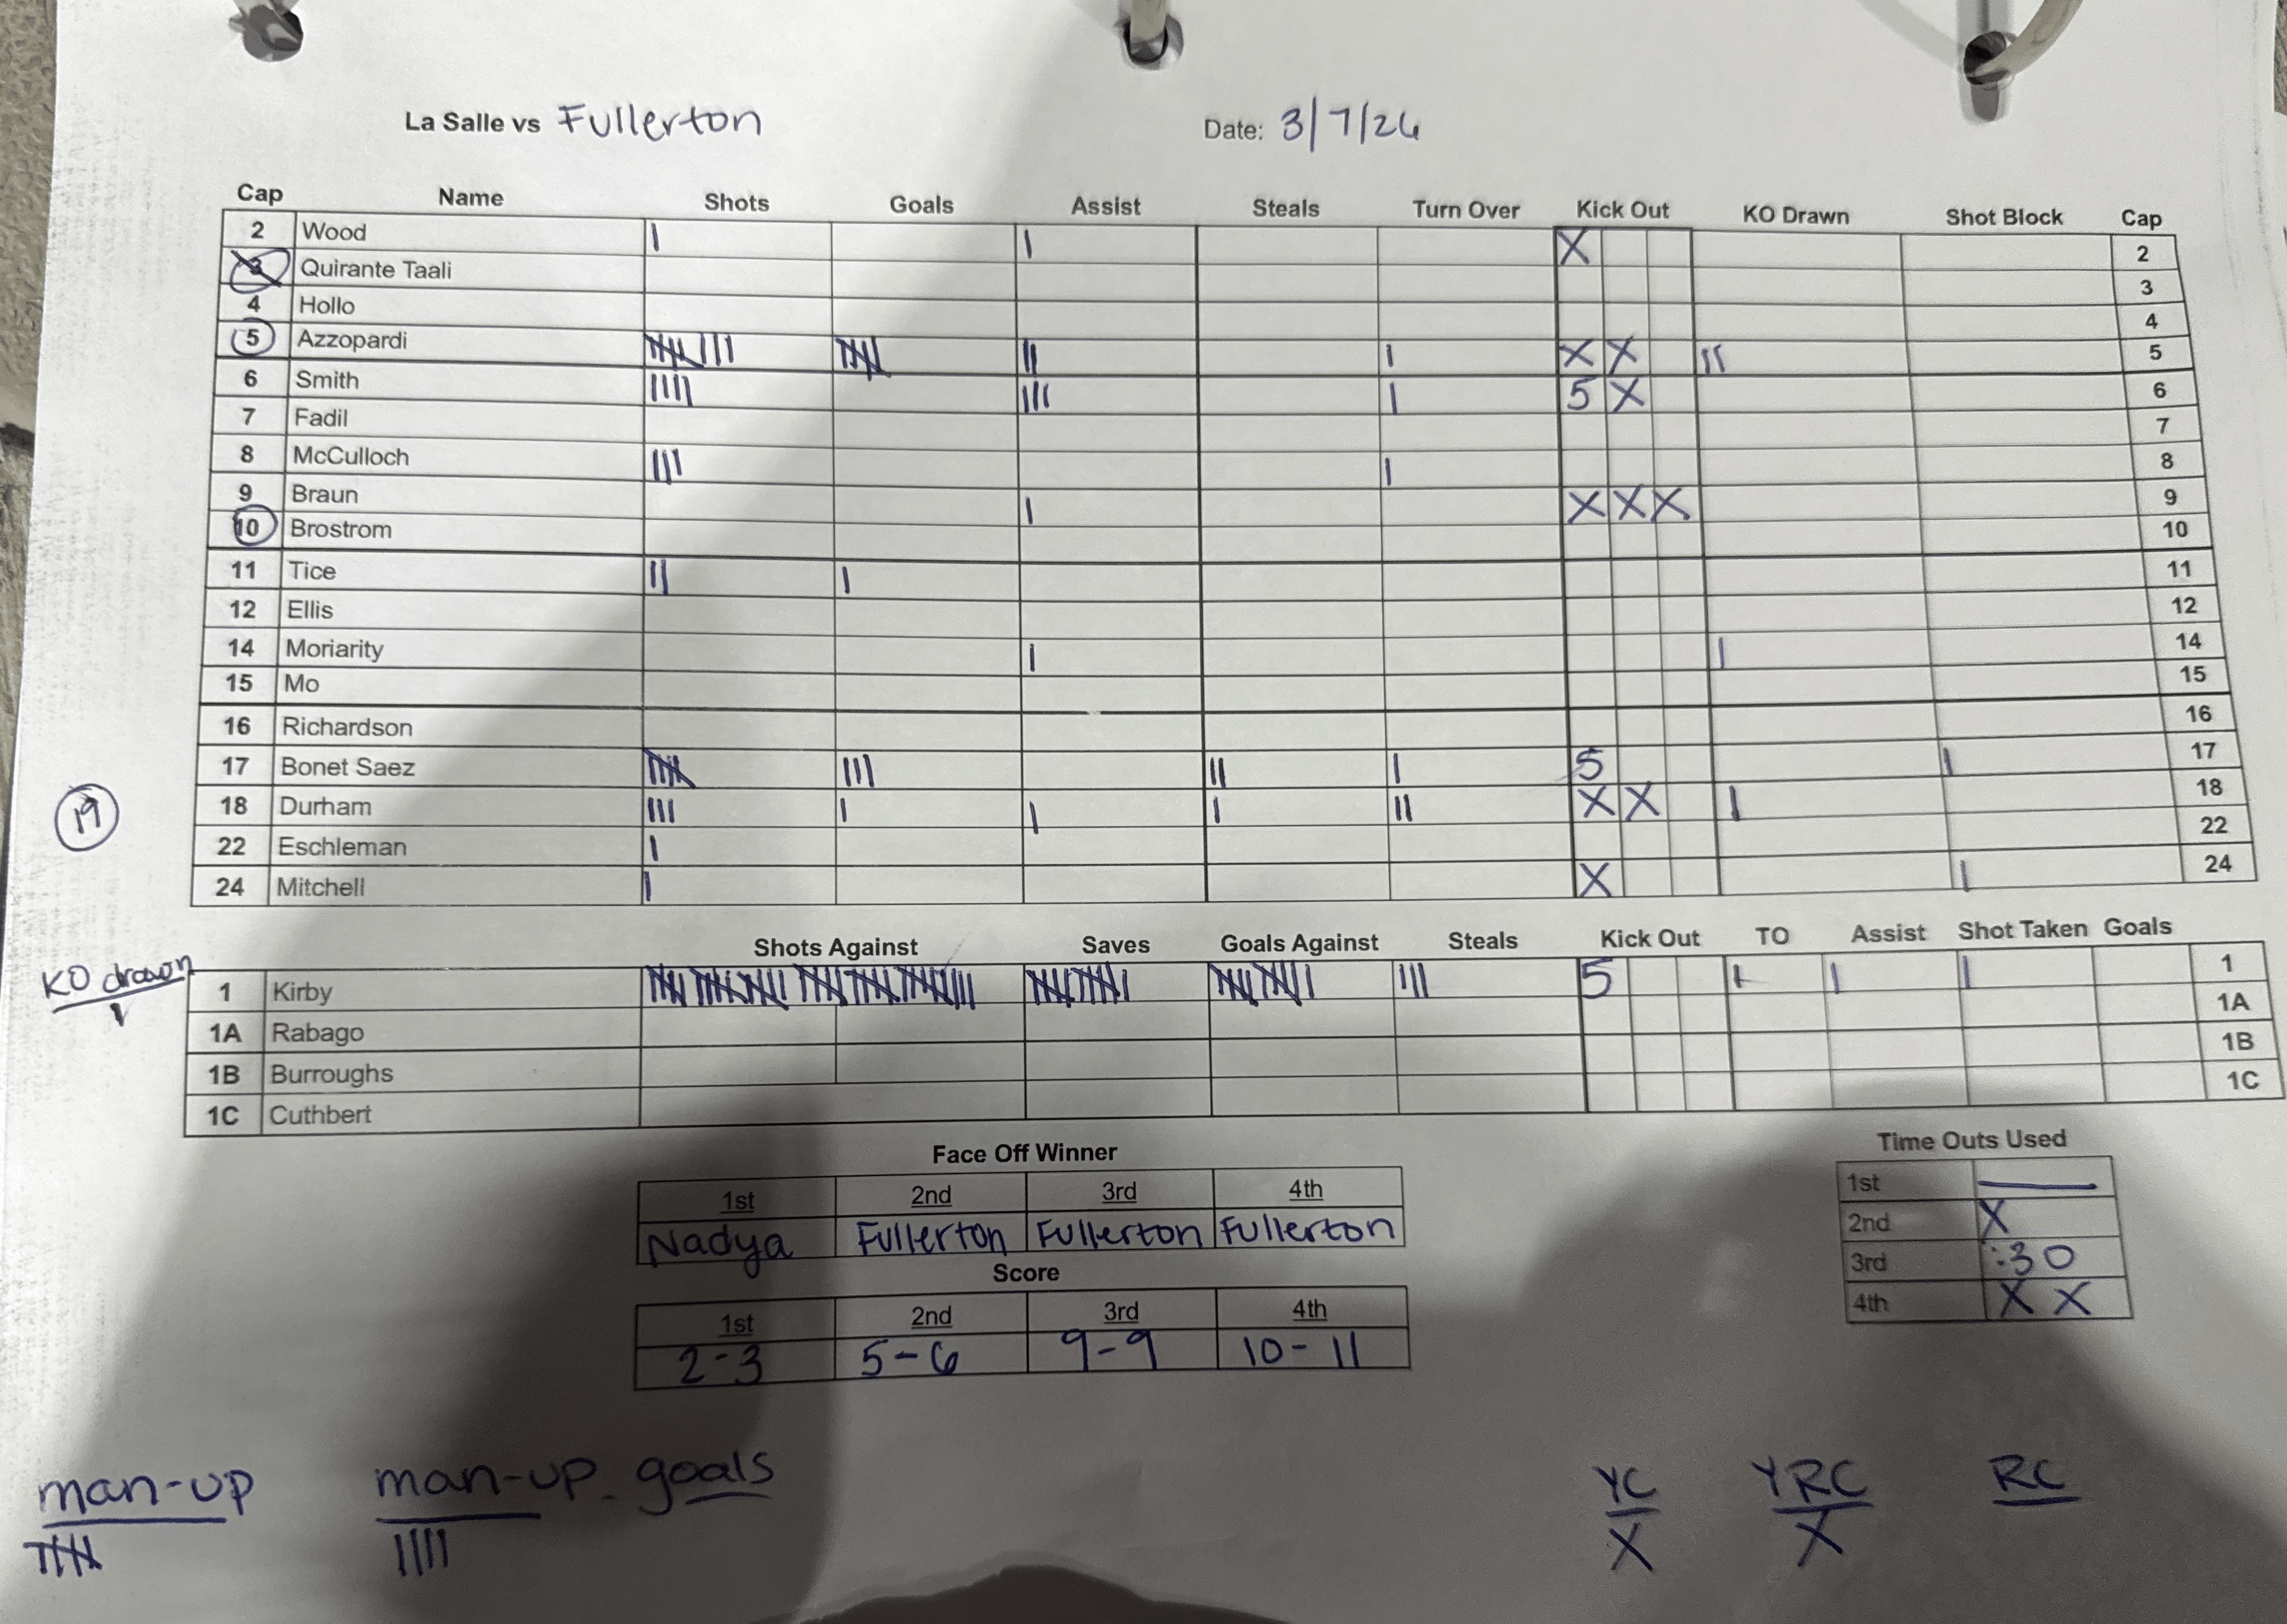 La Salle vs Fullerton Date: 3/7/26
Cap Name Shots Goals Assist Steals Turn Over Kick Out KO Drawn Shot Block Cap
2 Wood | | X 2
3 Quirante Taali 3
4 Hollo 4
5 Azzopardi |||| ||| |||| || | X X || 5
6 Smith |||| ||| | 5 X 6
7 Fadil 7
8 McCulloch ||| | 8
9 Braun | X X X 9
10 Brostrom 10
11 Tice || | 11
12 Ellis 12
14 Moriarity | | 14
15 Mo 15
16 Richardson 16
17 Bonet Saez |||| ||| || | 5 | 17
19
18 Durham ||| | | | || X X | 18
22 Eschleman | 22
24 Mitchell | X | 24
Shots Against Saves Goals Against Steals Kick Out TO Assist Shot Taken Goals
KO drawn
|
1 Kirby ||| 5 | | | 1
1A Rabago 1A
1B Burroughs 1B
1C Cuthbert 1C
Face Off Winner
1st 2nd 3rd 4th
Nadya Fullerton Fullerton Fullerton
Score
1st 2nd 3rd 4th
2-3 5-6 9-9 10-11
Time Outs Used
1st —
2nd X
3rd :30
4th X X
man-up man-up goals YC YRC RC
|||| |||| X X